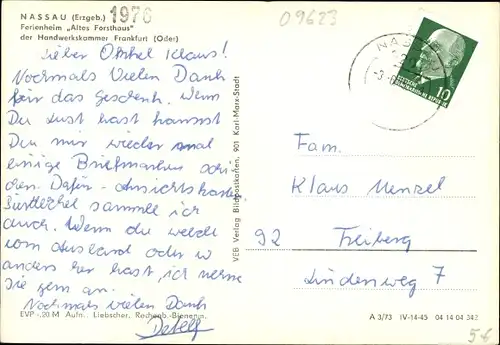 NASSAU (Erzgeb.) 1976
Ferienheim „Altes Forsthaus"
der Handwerkskammer Frankfurt (Oder)
Lieber Onkel Klaus!
Nochmals Vielen Dank
für das Geschenk. Wenn
Du Lust hast kannst
Du mir wieder mal
einige Briefmarken schi-
cken. Dafür
sammle ich
auch. Wenn du welche
vom Ausland oder wo
anders her hast, ich nehme
sie gern an.
Nochmals vielen Dank
EVP -,20 M Aufn.: Liebscher, Rechenb.-Bienenm.
VEB Verlag Bildpostkarten, 901 Karl-Marx-Stadt
09623
NASSAU
10
Fam.
Klaus Menzel
92 Freiberg
Lindenweg 7
A 3/73 IV-14-45 04 14 04 342